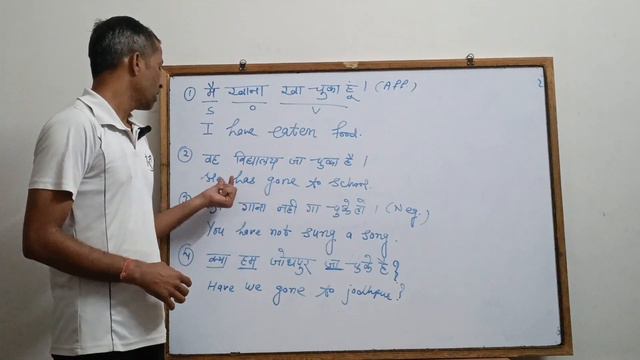 ① मै खाना खा चुका हूं । (Aff)
S O V
I have eaten food.
② वह विद्यालय जा चुका है ।
has gone to school.
गाना नही गा चुके हो । (Neg.)
You have not sung a song.
④ क्या हम जोधपुर जा चुके है ?
Have we gone to jodhpur ?